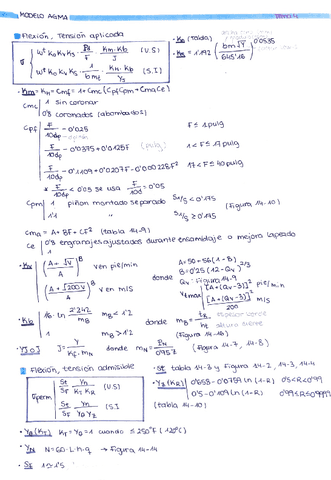 MODELO AGMA
1 Flexión, tensión aplicada
σ { Wt Ko Kv Ks Pd/F Km·Kb/J (U.S)
Wt Ko Kv Ks · 1/b·mt KH·KB/YJ (S.I)
· Ko (tabla)
· Ks = 1'192 (bm√Y/645'16)^0'0535
· Km = KH = Cmf = 1 + Cmc (Cpf Cpm + Cma Ce)
Cmc | 1 sin coronar
0'8 coronados (abombados)
Cpf | F/10dp - 0'025 F ≤ 1 pulg
F/10dp - 0'0375 + 0'0125F 1 < F ≤ 17 pulg
F/10dp - 0'1109 + 0'0207F - 0'000228F² 17 < F ≤ 40 pulg
* F/10dp < 0'05 se usa = 0'05
Cpm | 1 piñon montado separado S1/S < 0'175
1'1 " S1/S ≥ 0'175 (Figura 14-10)
Cma = A + BF + CF² (tabla 14-9)
Ce | 0'8 engranajes ajustados durante ensamblaje o mejora lapeado
1
· Kv | (A+√V/A)^B V en pie/min
(A+√200V/A)^B V en m/s
donde A = 50 + 56(1-B)
B = 0'25 (12-Qv)^2/3
Qv: Figura 14-9
Vtmax | [A+(Qv-3)]² pie/min
[A+(Qv-3)]²/200 m/s
· Kb | 1'6 · ln 2'242/mB mB < 1'2
1 mB > 1'2
donde mB = tR/ht
(Figura 14-16)
· YJ [J] J = Y/Kf·mN donde mN = PN/0'95Z (Figura 14-7, 14-8)
2 Flexión, tensión admisible
σperm | St/SF YN/KT KR (U.S)
St/SF YN/Yθ YZ (S.I)
· St tabla 14-8 y Figura 14-2, 14-3, 14-4
· YZ (KR) | 0'658 - 0'0759 ln (1-R) 0'5<R<0'99
0'5 - 0'109 ln (1-R) 0'99≤R≤0'9999
(tabla 14-10)
· Yθ (KT) KT = Yθ = 1 cuando ≤ 250°F (120°C)
· YN N = 60·L·n·q → Figura 14-14
· SF 1'2-1'5